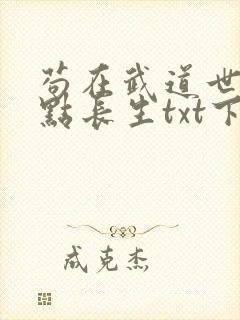 苟在武道世
點長生txt下
成克杰